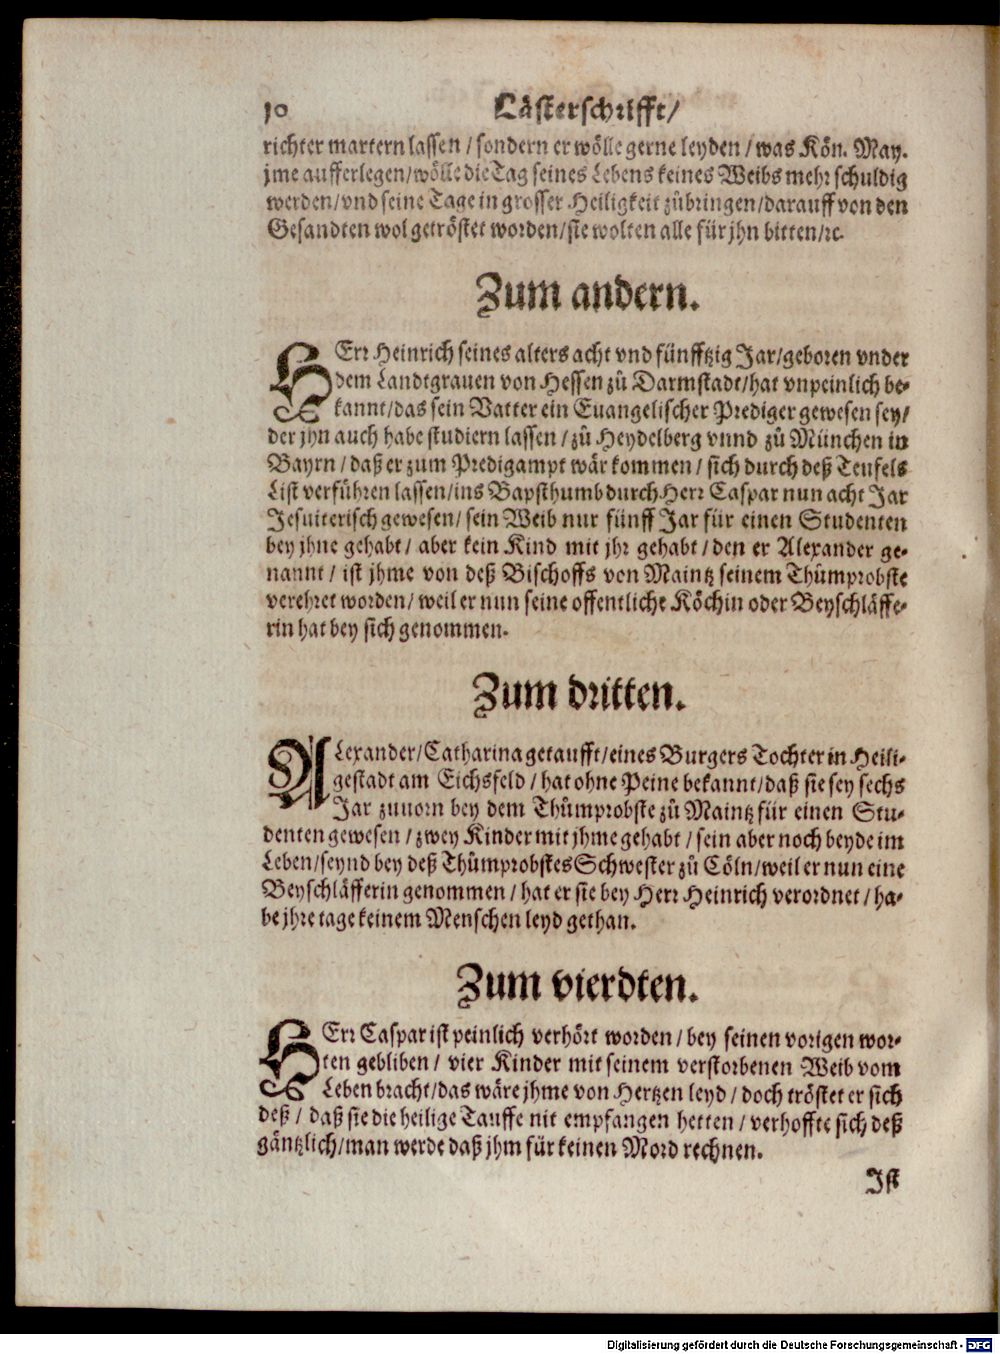 10 Lästerschrifft/
richter martern lassen / sondern er wölle gerne leyden / was Kön. May.
jme aufferlegen/wölle die Tag seines Lebens keines Weibs mehr schuldig
werden/vnd seine Tage in grosser Heiligkeit zůbringen/darauff von den
Gesandten wol getröstet worden/sie wolten alle für jhn bitten/ꝛc.
Zum andern.
HErr Heinrich seines alters acht vnd fünfftzig Jar/geboren vnder
dem Landtgrauen von Hessen zů Darmstadt/hat vnpeinlich be-
kannt/das sein Vatter ein Euangelischer Prediger gewesen sey/
der jhn auch habe studiern lassen / zů Heydelberg vnnd zů München in
Bayrn / daß er zum Predigampt wär kommen / sich durch deß Teufels
List verführen lassen/ins Bapsthumb durch Herr Caspar nun acht Jar
Jesuiterisch gewesen/ sein Weib nur fünff Jar für einen Studenten
bey jhne gehabt/ aber kein Kind mit jhr gehabt / den er Alexander ge-
nannt / ist jhme von deß Bischoffs von Maintz seinem Thůmprobste
verehret worden/ weil er nun seine offentliche Köchin oder Beyschläffe-
rin hat bey sich genommen.
Zum dritten.
ALexander/Catharina getaufft/eines Burgers Tochter in Heili-
gestadt am Eichsfeld / hat ohne Peine bekannt/daß sie sey sechs
Jar zuuorn bey dem Thůmprobste zů Maintz für einen Stu-
denten gewesen / zwey Kinder mit jhme gehabt / sein aber noch beyde im
Leben/seynd bey deß Thůmprobstes Schwester zů Cöln/weil er nun eine
Beyschläfferin genommen / hat er sie bey Herr Heinrich verordnet / ha-
be jhre tage keinem Menschen leyd gethan.
Zum vierdten.
HErr Caspar ist peinlich verhört worden / bey seinen vorigen wor-
ten gebliben / vier Kinder mit seinem verstorbenen Weib vom
Leben bracht/das wäre jhme von Hertzen leyd / doch tröstet er sich
deß / daß sie die heilige Tauffe nit empfangen hetten / verhoffte sich deß
gäntzlich/man werde daß jhm für keinen Mord rechnen.
Ist
Digitalisierung gefördert durch die Deutsche Forschungsgemeinschaft - DFG